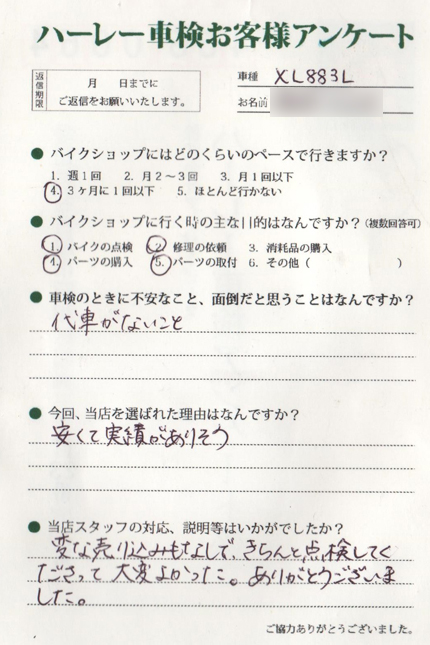 ハーレー車検お客様アンケート
返信期限
月 日までに
ご返信をお願いいたします。
車種 XL883L
お名前
● バイクショップにはどのくらいのペースで行きますか？
1. 週1回 2. 月2～3回 3. 月1回以下
4. 3ヶ月に1回以下 5. ほとんど行かない
● バイクショップに行く時の主な目的はなんですか？（複数回答可）
1. バイクの点検 2. 修理の依頼 3. 消耗品の購入
4. パーツの購入 5. パーツの取付 6. その他（ ）
● 車検のときに不安なこと、面倒だと思うことはなんですか？
代車がないこと
● 今回、当店を選ばれた理由はなんですか？
安くて実績がありそう
● 当店スタッフの対応、説明等はいかがでしたか？
変な売り込みもなしで、きちんと点検してく
ださって大変よかった。ありがとうございま
した。
ご協力ありがとうございました。